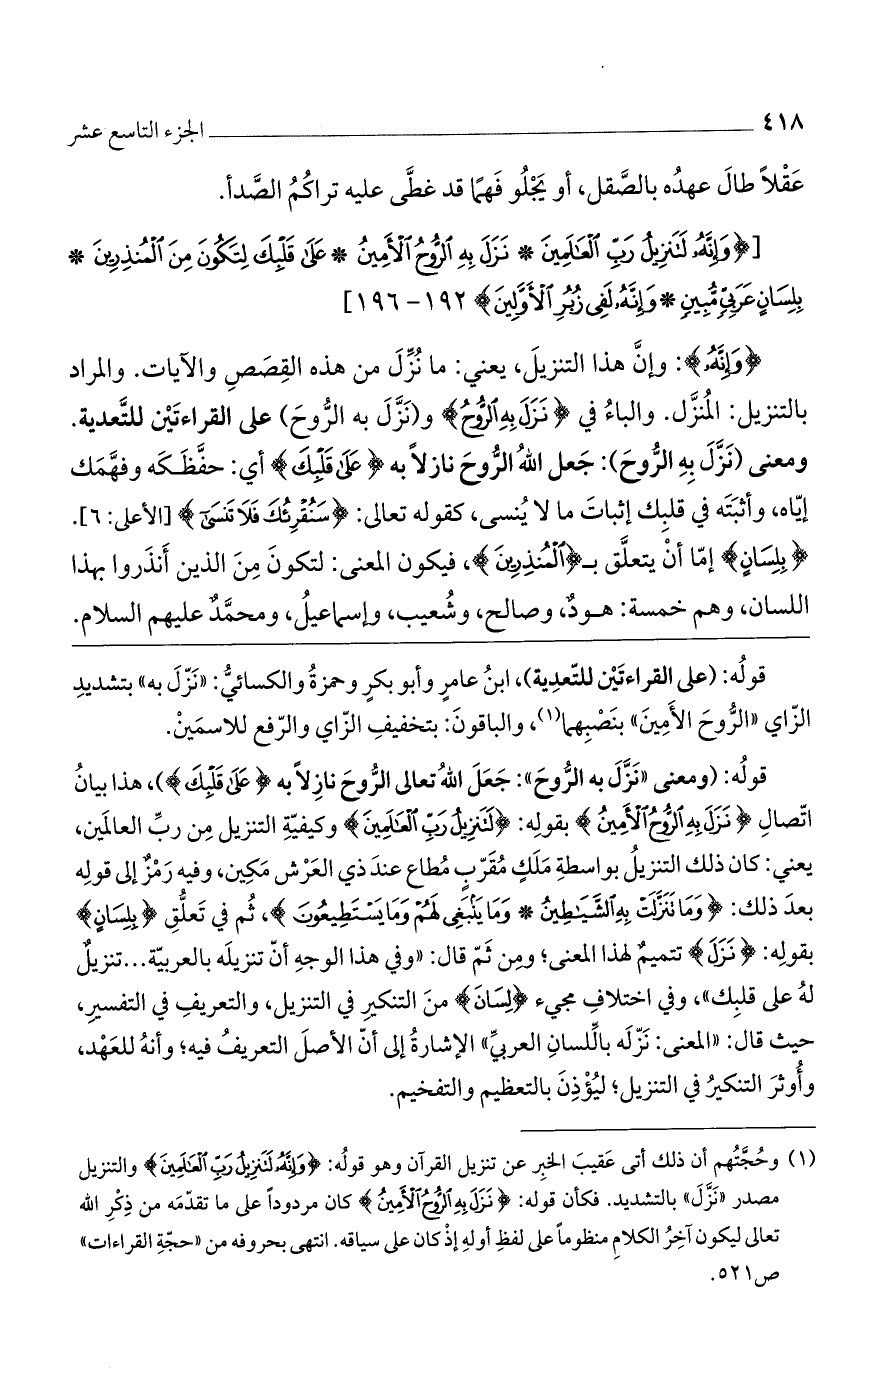 ٤١٨ الجزء التاسع عشر
عَقْلاً طالَ عهدُه بالصَّقل، أو يَجْلُو فَهمًا قد غطَّى عليه تراكُمُ الصَّدأ.
[﴿وَإِنَّهُۥ لَتَنزِيلُ رَبِّ ٱلْعَٰلَمِينَ * نَزَلَ بِهِ ٱلرُّوحُ ٱلْأَمِينُ * عَلَىٰ قَلْبِكَ لِتَكُونَ مِنَ ٱلْمُنذِرِينَ *
بِلِسَانٍ عَرَبِيٍّ مُّبِينٍ * وَإِنَّهُۥ لَفِى زُبُرِ ٱلْأَوَّلِينَ﴾ ١٩٢ - ١٩٦]
﴿وَإِنَّهُۥ﴾: وإنَّ هذا التنزيلَ، يعني: ما نُزِّلَ من هذه القِصَصِ والآيات. والمراد
بالتنزيل: المُنزَّل. والباءُ في ﴿نَزَلَ بِهِ ٱلرُّوحُ﴾ و(نَزَّل به الرُّوحَ) على القراءتَيْن للتَّعدية.
ومعنى (نَزَّلَ بِهِ الرُّوحَ): جَعل اللهُ الرُّوحَ نازلاً به ﴿عَلَىٰ قَلْبِكَ﴾ أي: حفَّظَكَه وفهَّمَك
إيّاه، وأثبَتَه في قلبِك إثباتَ ما لا يُنسى، كقوله تعالى: ﴿سَنُقْرِئُكَ فَلَا تَنسَىٰٓ﴾ [الأعلى: ٦].
﴿بِلِسَانٍ﴾ إمّا أنْ يتعلَّق بـ﴿ٱلْمُنذِرِينَ﴾، فيكون المعنى: لتكونَ مِنَ الذين أَنذَروا بهذا
اللسان، وهم خمسة: هـودٌ، وصالح، وشُعيب، وإسماعيلُ، ومحمَّدٌ عليهم السلام.
قولُه: (على القراءتَيْن للتّعدِية)، ابنُ عامرٍ وأبو بكرٍ وحمزةُ والكسائيُّ: «نَزّلَ به» بتشديدِ
الزّاي «الرُّوحَ الأمِينَ» بنَصْبِهما(١)، والباقونَ: بتخفيفِ الزّاي والرّفع للاسمَينْ.
قولُه: (ومعنى «نَزَّلَ به الرُّوحَ»: جَعَلَ اللهُ تعالى الرُّوحَ نازِلاً به ﴿عَلَىٰ قَلْبِكَ﴾)، هذا بيانُ
اتّصالِ ﴿نَزَلَ بِهِ ٱلرُّوحُ ٱلْأَمِينُ﴾ بقولِه: ﴿لَتَنزِيلُ رَبِّ ٱلْعَٰلَمِينَ﴾ وكيفيّةِ التنزيل مِن ربِّ العالمَين،
يعني: كان ذلك التنزيلُ بواسطةِ مَلَكٍ مُقَرّبٍ مُطاع عندَ ذي العَرْش مَكِين، وفيه رَمْزٌ إلى قولِه
بعدَ ذلك: ﴿وَمَا تَنَزَّلَتْ بِهِ ٱلشَّيَٰطِينُ * وَمَا يَنۢبَغِى لَهُمْ وَمَا يَسْتَطِيعُونَ﴾، ثُم في تَعلُّقِ ﴿بِلِسَانٍ﴾
بقولِه: ﴿نَزَلَ﴾ تتميمٌ لهذا المعنى؛ ومِن ثَمّ قال: «وفي هذا الوجهِ أنّ تنزيلَه بالعربيّة...تنزيلٌ
لهُ على قلبِك»، وفي اختلافِ مجيء ﴿لِسَانَ﴾ منَ التنكيرِ في التنزيل، والتعريفِ في التفسير،
حيث قال: «المعنى: نَزّلَه باللِّسانِ العربيِّ» الإشارةُ إلى أنّ الأصلَ التعريفُ فيه؛ وأنهُ للعَهْد،
وأُوثرَ التنكيرُ في التنزيل؛ ليُؤْذِنَ بالتعظيم والتفخيم.
(١) وحُجَّتُهم أن ذلك أتى عَقيبَ الخبرِ عن تنزيل القرآن وهو قولُه: ﴿وَإِنَّهُۥ لَتَنزِيلُ رَبِّ ٱلْعَٰلَمِينَ﴾ والتنزيل
مصدر «نَزَّلَ» بالتشديد. فكأن قوله: ﴿نَزَلَ بِهِ ٱلرُّوحُ ٱلْأَمِينُ﴾ كان مردوداً على ما تقدّمَه من ذِكْرِ الله
تعالى ليكون آخِرُ الكلامِ منظوماً على لفظِ أولهِ إذْ كان على سياقه. انتهى بحروفه من «حجّةِ القراءات»
ص٥٢١.